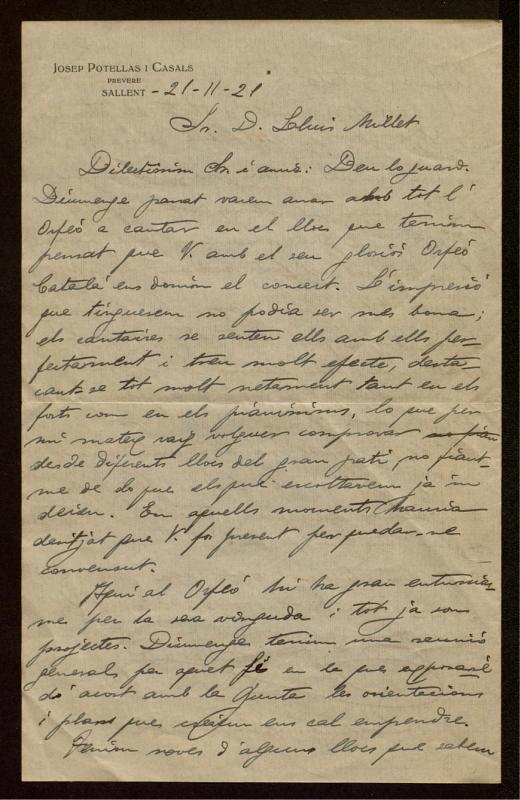 JOSEP POTELLAS I CASALS
PREVERE
SALLENT - 21-11-21
Sr. D. Lluis Millet
Dilectissim Sr. i amic: Deu lo guard.
Diumenge passat varem anar amb tot l'
Orfeó a cantar en el lloc que teniem
pensat que V. amb el seu gloriós Orfeó
Catalá ens donium el concert. L'impresió
que tinguerem no podia ser mes bona;
els cantaires se senten ells amb ells per-
fectament i treu molt efecte, desta-
cant-se tot molt netament tant en els
forts com en els pianissims, lo que per
mi mateig vaig volguer comprovar
desde diferents llocs del gran pati, no fiant-
me de lo que els qui escoltavem ja im
deien. En aquells moments hauria
desitjat que V. fos present per quedar-ne
convensut.
Aqui al Orfeó hi ha gran entusias-
me per la seva vinguda i tot ja son
projectes. Diumenge tenim una reunió
general per aquet fi en la que exposaré
d'acort amb la Junta les orientacions
i plans que creiem ens cal empendre.
Tenim noves d'alguns llocs que sabem